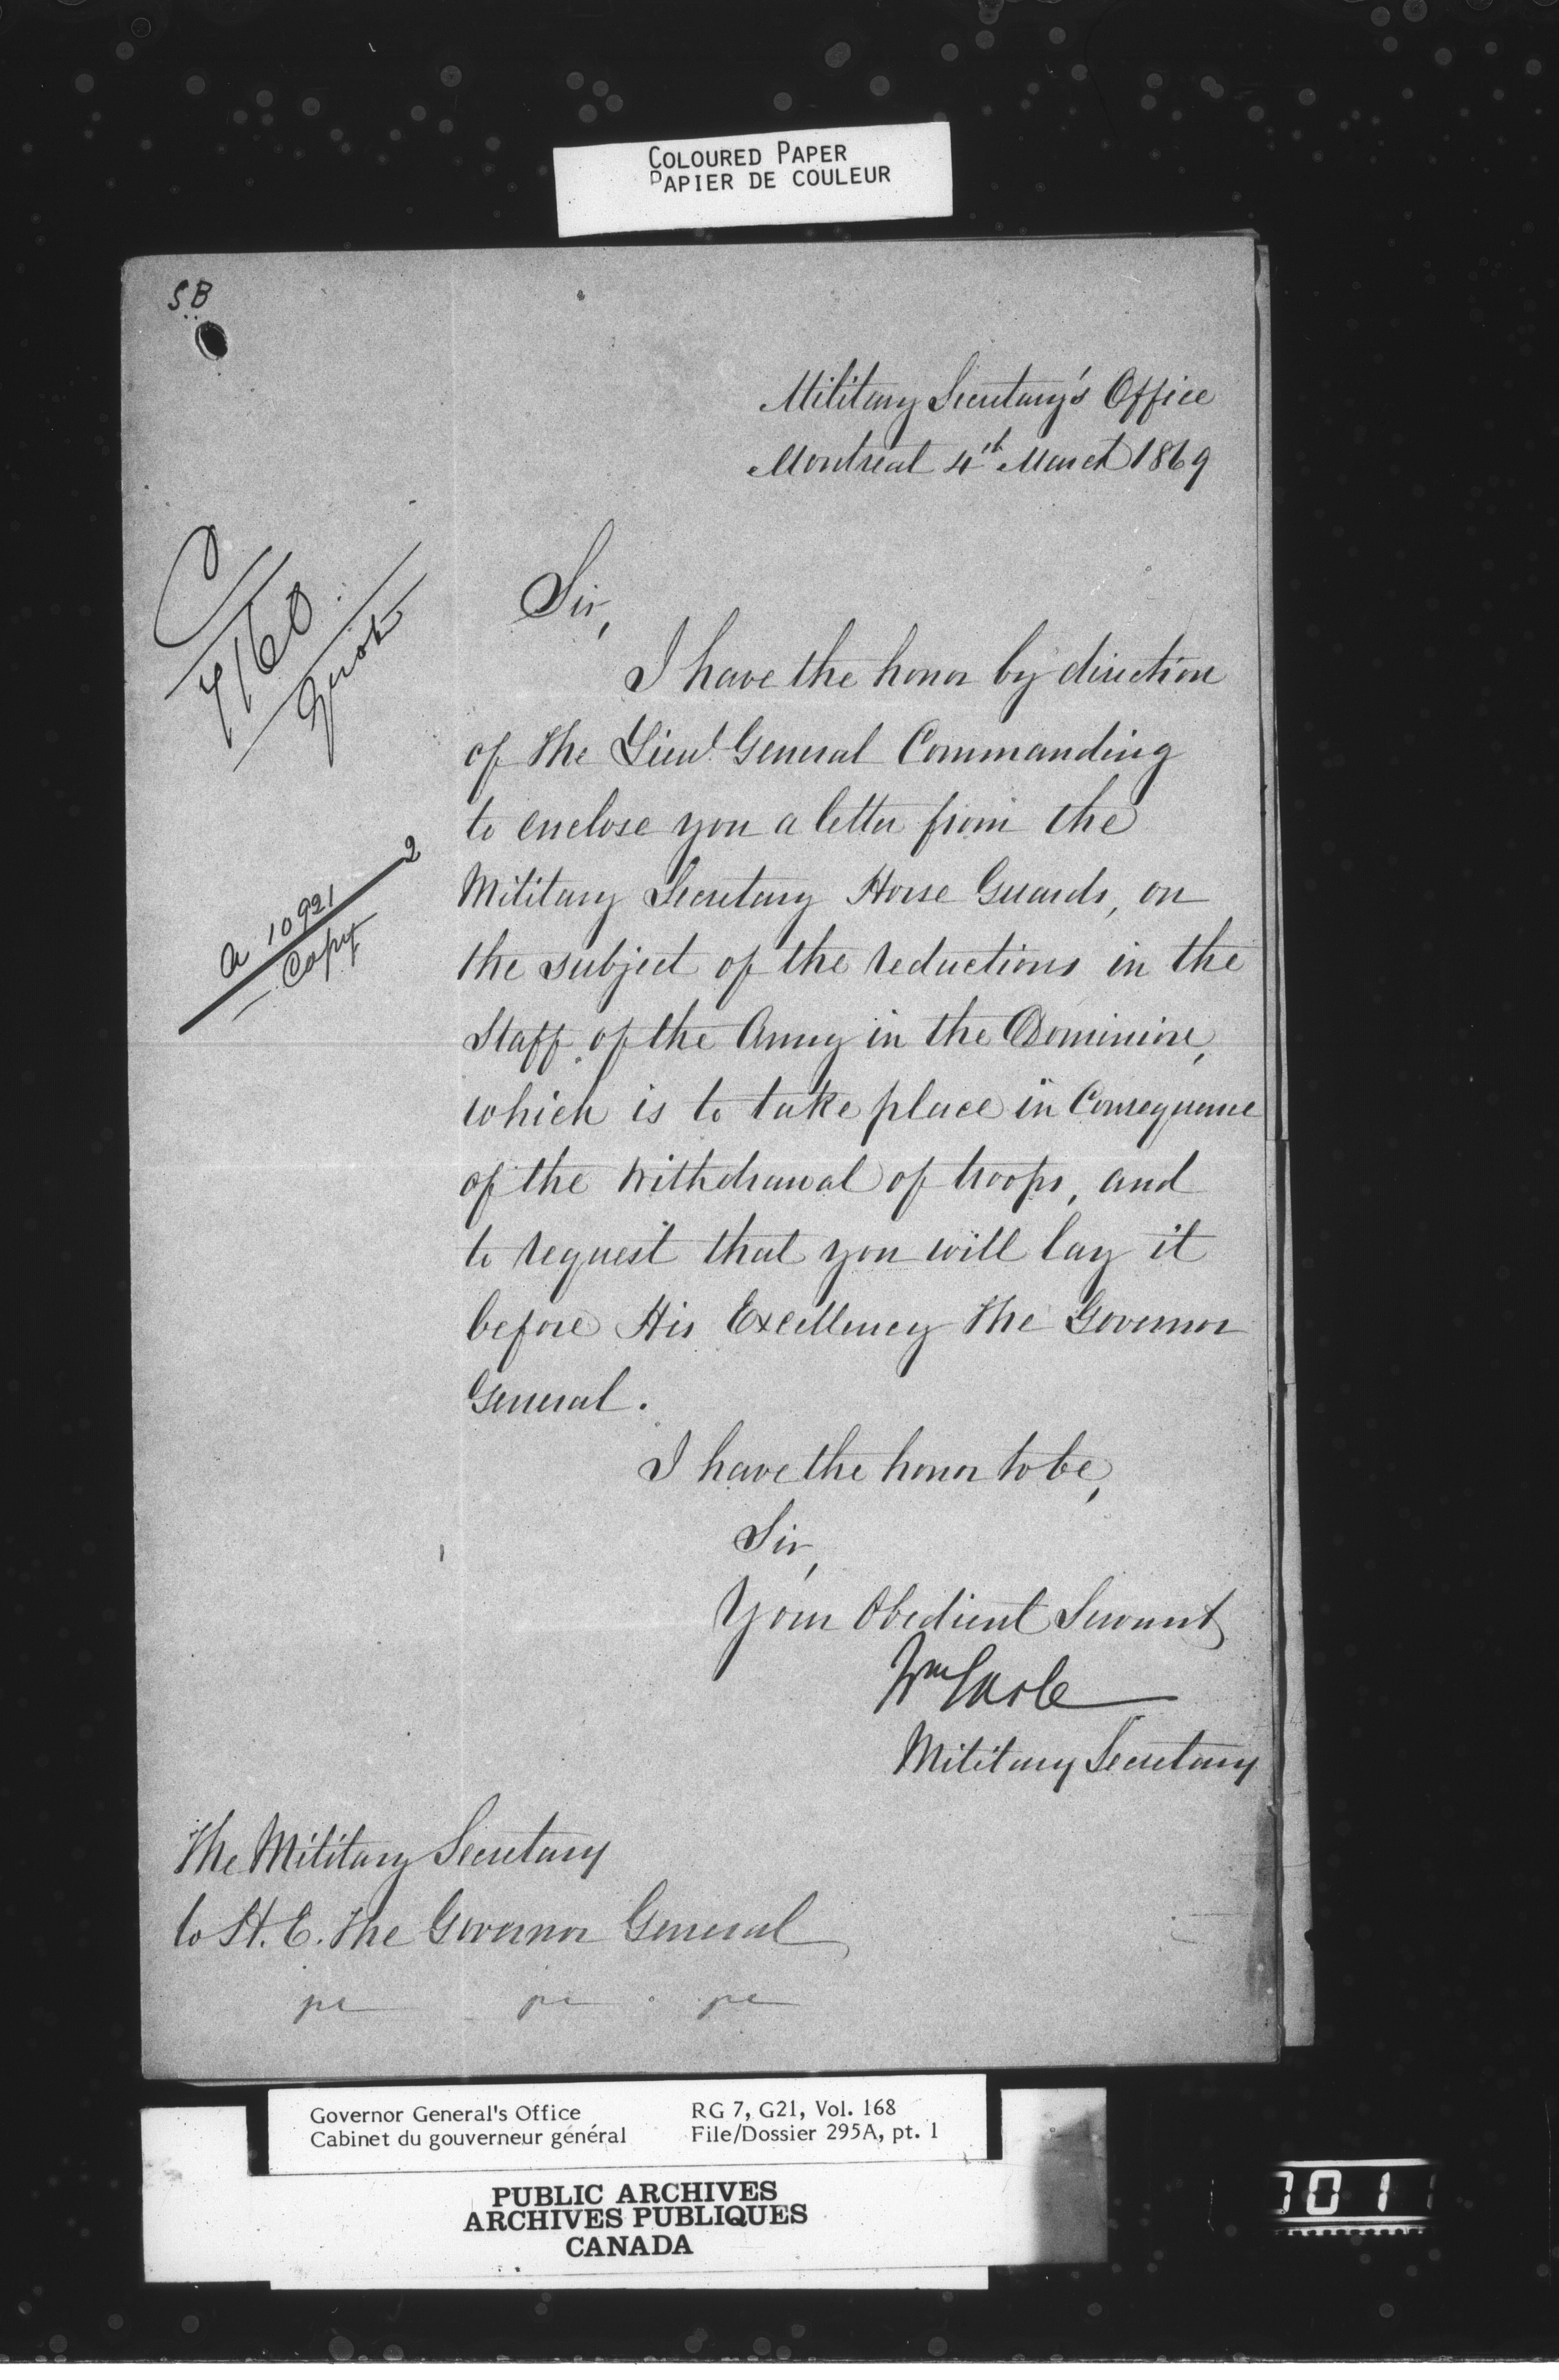 COLOURED PAPER
PAPIER DE COULEUR
S.B
Military Secretary's Office
Montreal 4th March 1869
C
7160
Sir,
I have the honor by direction
of the Lieut General Commanding
to enclose you a letter from the
Military Secretary Horse Guards, on
the subject of the reductions in the
Staff of the Army in the Dominion,
which is to take place in Consequence
of the withdrawal of troops, and
to request that you will lay it
before His Excellency the Governor
General.
a 10921 2
Copy
I have the honor to be,
Sir,
Your Obedient Servant
Wm Earle
Military Secretary
The Military Secretary
to H.E. the Governor General
Governor General's Office
Cabinet du gouverneur général
RG 7, G21, Vol. 168
File/Dossier 295A, pt. 1
PUBLIC ARCHIVES
ARCHIVES PUBLIQUES
CANADA